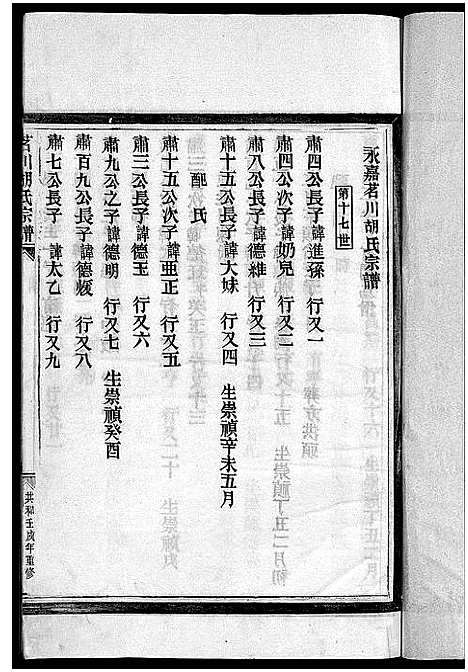 永嘉茗川胡氏宗譜
第十七世
肅四公長子諱進孫 行又一
肅四公次子諱奶兒 行又二
肅八公長子諱德維 行又三
肅十五公長子諱大妹 行又四 生崇禎辛未五月
配 氏
肅十五公次子諱亜正 行又五
肅三公長子諱德玉 行又六
肅九公之子諱德明 行又七 生崇禎癸酉
肅百九公長子諱德 行又八
肅七公長子 諱太乙 行又九
茗川胡氏宗譜
共和壬戌年重修